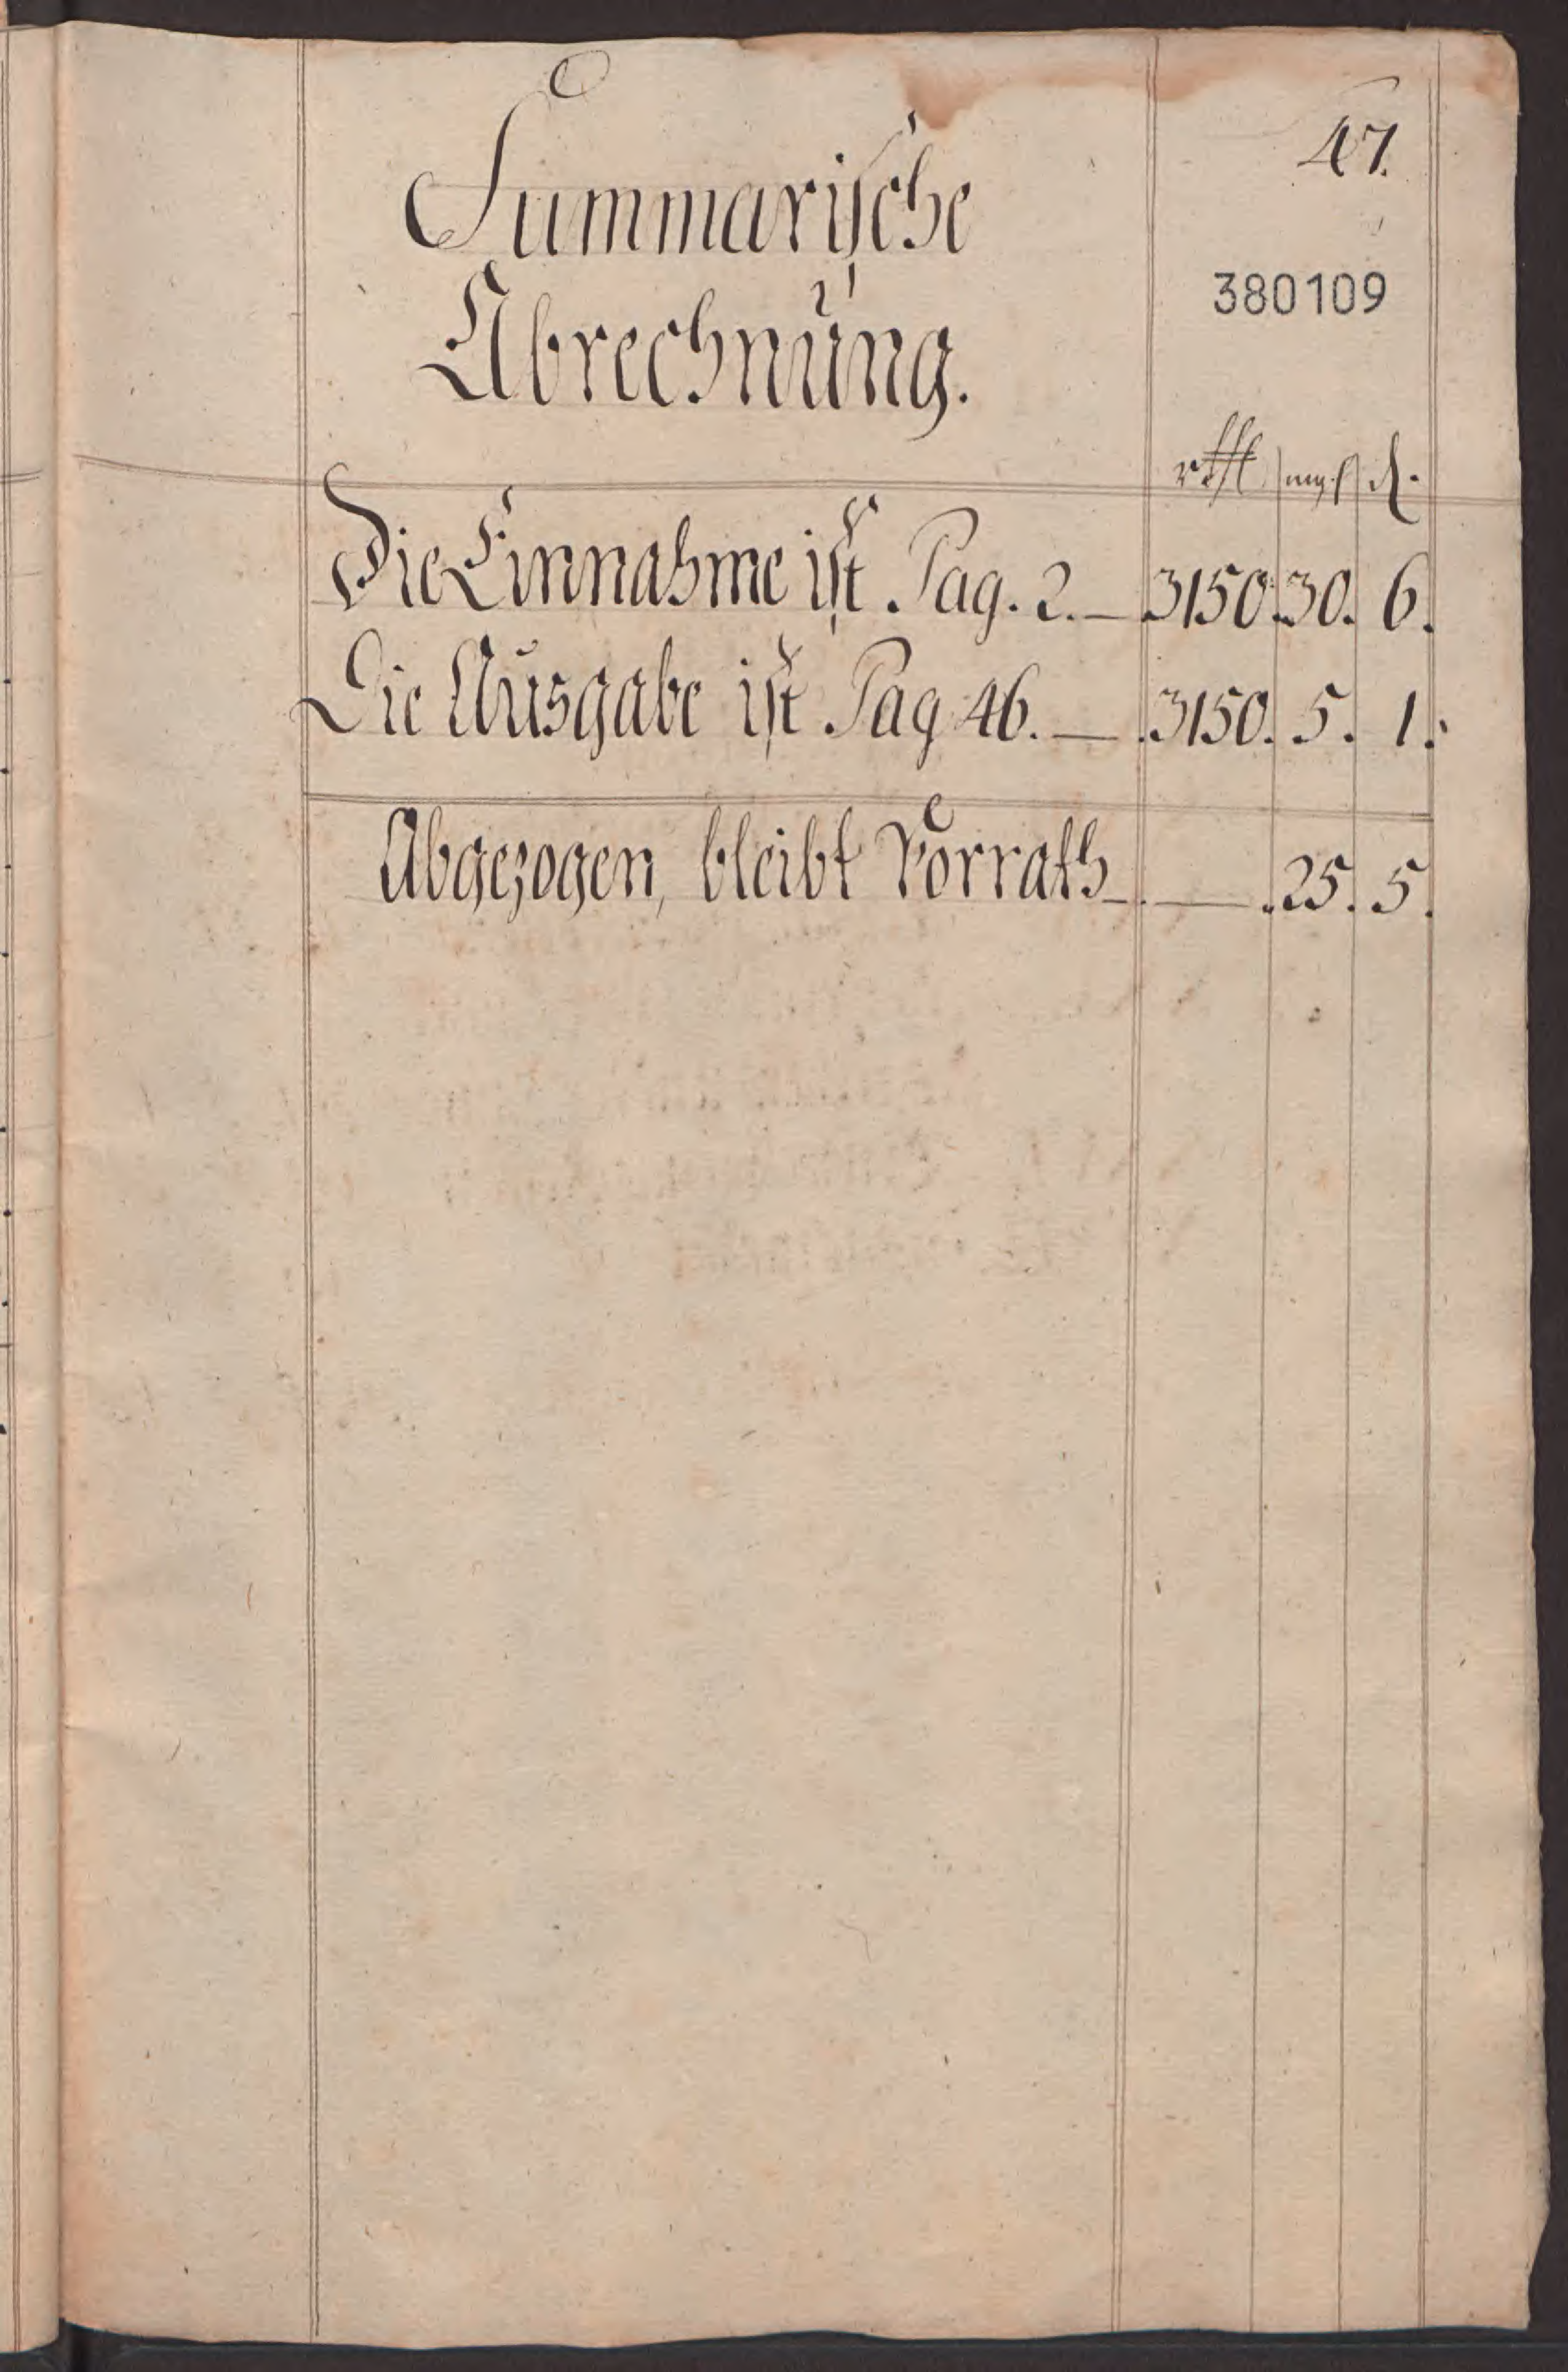 47.
Summarische
380109
Abrechnung.
rthl mgf d.
Die Einnahme ist Pag. 2. — 3150. 30. 6.
Die Ausgabe ist Pag 46. — 3150. 5. 1.
Abgezogen, bleibt Vorrath — . 25. 5.